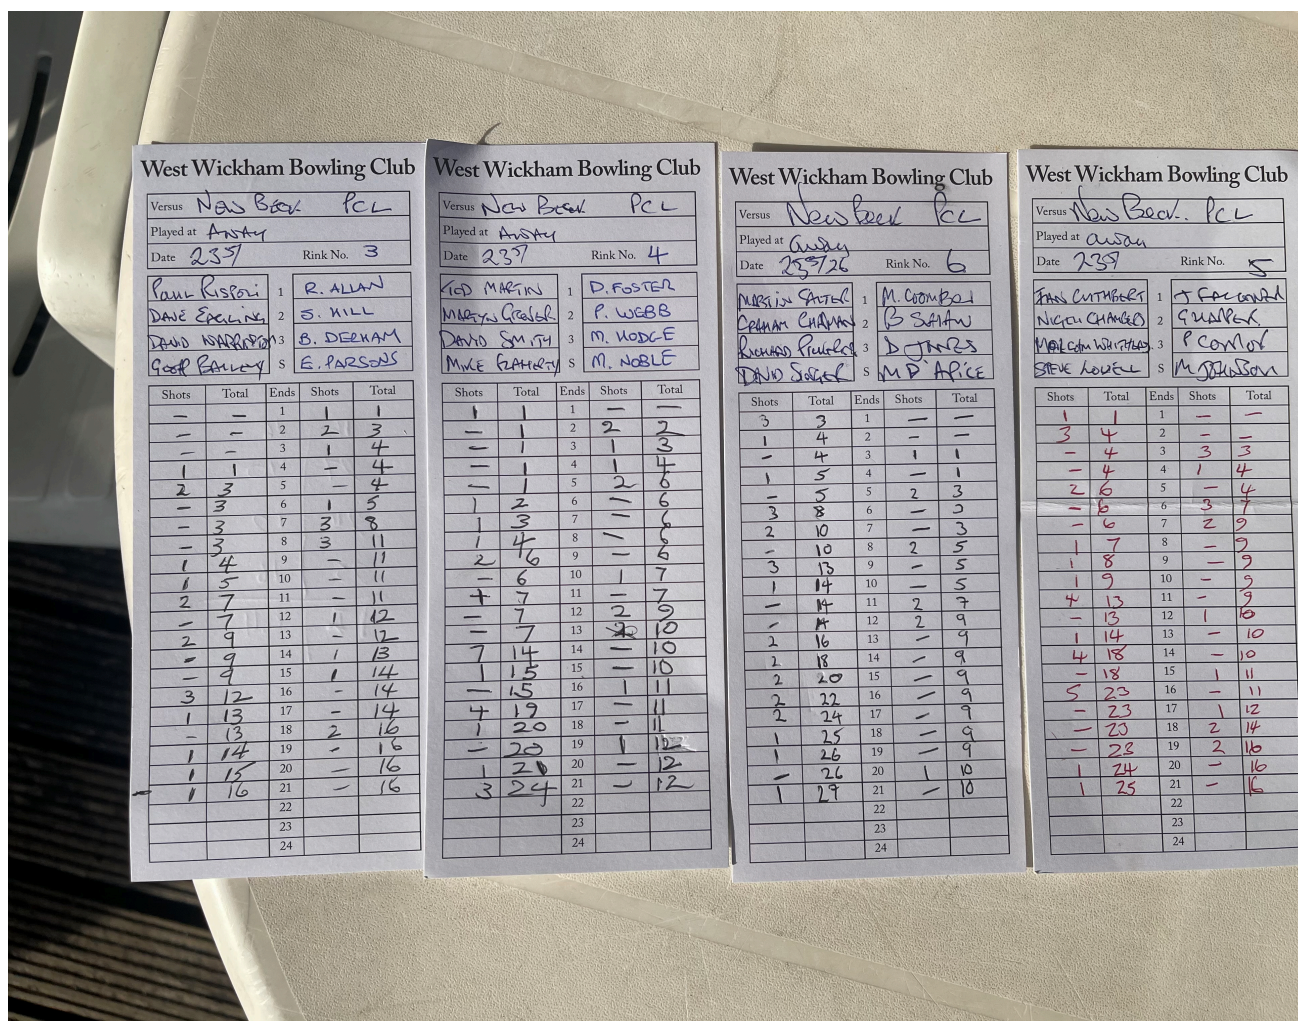 West Wickham Bowling Club
Versus New Beck PCL
Played at AWAY
Date Rink No. 3
PAUL RISPOLI 1 R. ALLAN
DAVE 2 S. HILL
DAVID 3 B. DERHAM
GEOFF BAILEY S E. PARSONS
Shots Total Ends Shots Total
– – 1 1 1
– – 2 2 3
– – 3 1 4
1 1 4 – 4
2 3 5 – 4
– 3 6 1 5
– 3 7 3 8
– 3 8 3 11
1 4 9 – 11
1 5 10 – 11
2 7 11 – 11
– 7 12 1 12
2 9 13 – 12
– 9 14 1 13
– 9 15 1 14
3 12 16 – 14
1 13 17 – 14
– 13 18 2 16
1 14 19 – 16
1 15 20 – 16
1 16 21 – 16
22
23
24
West Wickham Bowling Club
Versus New Beck PCL
Played at AWAY
Date Rink No. 4
TED MARTIN 1 D. FOSTER
MARTYN 2 P. WEBB
DAVID SMITH 3 M. HODGE
MIKE FLAHERTY S M. NOBLE
Shots Total Ends Shots Total
1 1 1 – –
– 1 2 2 2
– 1 3 1 3
– 1 4 1 4
– 1 5 2 6
1 2 6 – 6
1 3 7 – 6
1 4 8 – 6
2 6 9 – 6
– 6 10 1 7
1 7 11 – 7
– 7 12 2 9
– 7 13 10
7 14 14 – 10
1 15 15 – 10
– 15 16 1 11
4 19 17 – 11
1 20 18 – 11
– 20 19 1 12
1 21 20 – 12
3 24 21 – 12
22
23
24
West Wickham Bowling Club
Versus New Beck PCL
Played at away
Date Rink No. 6
MARTIN SALTER 1 M. COOMBES
GRAHAM CHAPMAN 2 B SHAW
RICHARD 3 D JONES
DAVID S M D'APICE
Shots Total Ends Shots Total
3 3 1 – –
1 4 2 – –
– 4 3 1 1
1 5 4 – 1
– 5 5 2 3
3 8 6 – 3
2 10 7 – 3
– 10 8 2 5
3 13 9 – 5
1 14 10 – 5
– 14 11 2 7
– 14 12 2 9
2 16 13 – 9
2 18 14 – 9
2 20 15 – 9
2 22 16 – 9
2 24 17 – 9
1 25 18 – 9
1 26 19 – 9
– 26 20 1 10
1 27 21 – 10
22
23
24
West Wickham Bowling Club
Versus New Beck. PCL
Played at away
Date Rink No. 5
IAN CUTHBERT 1 J FALCONER
NIGEL CHAMBERS 2 G HARPER
MALCOM 3 P Connor
STEVE LOVELL S M JOHNSON
Shots Total Ends Shots Total
1 1 1 – –
3 4 2 – –
– 4 3 3 3
– 4 4 1 4
2 6 5 – 4
– 6 6 3 7
– 6 7 2 9
1 7 8 – 9
1 8 9 – 9
1 9 10 – 9
4 13 11 – 9
– 13 12 1 10
1 14 13 – 10
4 18 14 – 10
– 18 15 1 11
5 23 16 – 11
– 23 17 1 12
– 23 18 2 14
– 23 19 2 16
1 24 20 – 16
1 25 21 – 16
22
23
24